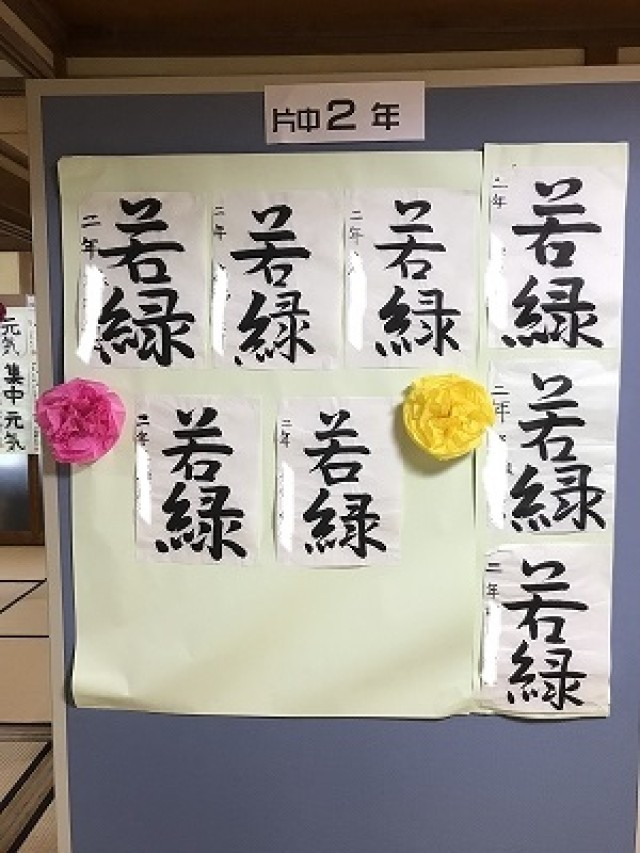 片中2年
二年
若緑
二年
若緑
二年
若緑
二年
若緑
二年
若緑
二年
若緑
二年
若緑
二年
若緑
元気
集中
元気